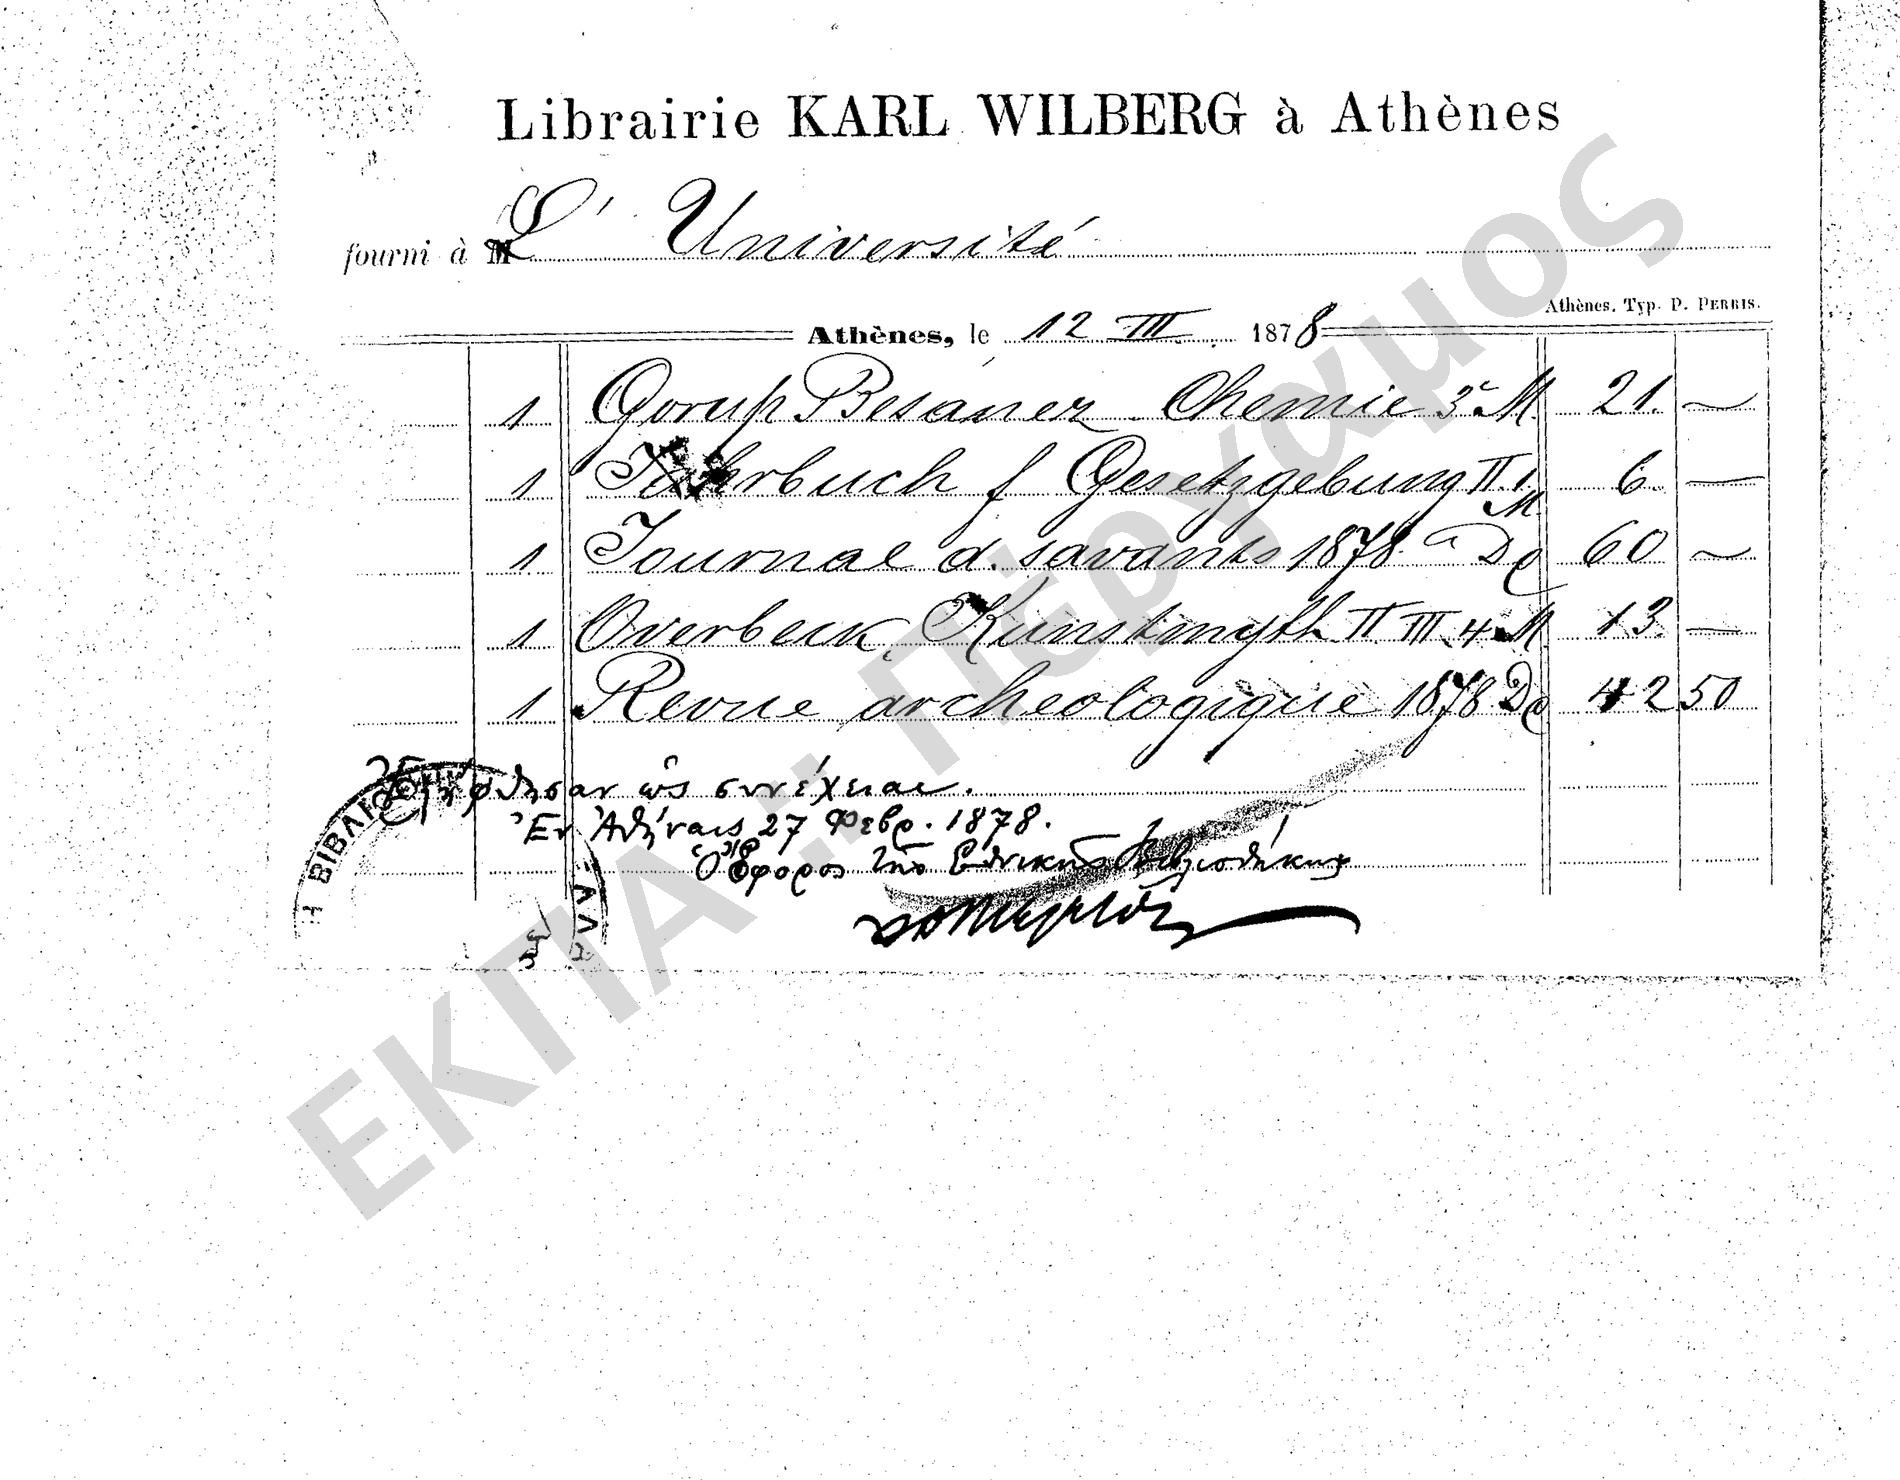 Librairie KARL WILBERG à Athènes
fourni à M L' Université
Athènes. Typ. P. PERRIS.
Athènes, le 12 III 1878
1 Gorup Besanez Chemie 3 M. 21. —
1 Jahrbuch f Gesetzgebung II 1 M 6. —
1 Journal d. savants 1878 Do 60 —
1 Overbeck, Kunstmyth II III 4 M 13. —
1 Revue archeologique 1878 Do 42 50
Ἐλήφθησαν ὡς συνέχειαι.
Ἐν Ἀθήναις 27 Φεβρ. 1878.
Ὁ Ἔφορος τῆς Ἐθνικῆς Βιβλιοθήκης
Η ΒΙΒΛΙΟΘΗΚΗ
ΕΛΛ
ΕΚΠΑ::Πέργαμος